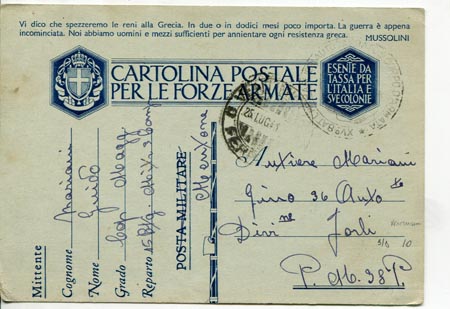 Vi dico che spezzeremo le reni alla Grecia. In due o in dodici mesi poco importa. La guerra è appena
incominciata. Noi abbiamo uomini e mezzi sufficienti per annientare ogni resistenza greca.
MUSSOLINI
CARTOLINA POSTALE
PER LE FORZE ARMATE
ESENTE DA
TASSA PER
L'ITALIA E
SUE COLONIE
Mittente
Cognome Mariani
Nome Guido
Grado
Reparto
POSTA MILITARE
Mentone
Mariani
Gino 36
Divi ne Forlì
P. M. 38